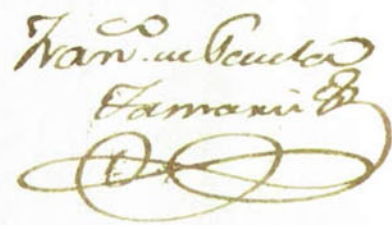 Fran.co de Paula
Tamariz